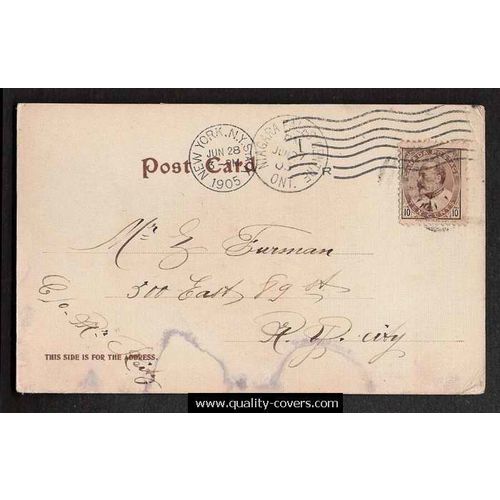 NEW YORK, N.Y.
JUN 28
1905
NIAGARA
ONT.
R
Post Card
10 10
Mr Furman
500 East 89 St
N. Y. City
C/o Mr
THIS SIDE IS FOR THE ADDRESS.
www.quality-covers.com